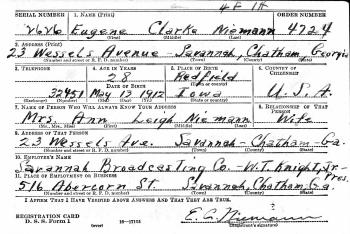 4F 1H
SERIAL NUMBER 1. NAME (Print) ORDER NUMBER
2626 Eugene Clarke Niemann 4724
(First) (Middle) (Last)
2. ADDRESS (Print)
23 Wessels Avenue - Savannah, Chatham, Georgia
(Number and street or R. F. D. number) (Town) (County) (State)
3. TELEPHONE 4. AGE IN YEARS 5. PLACE OF BIRTH 6. COUNTRY OF CITIZENSHIP
28 Redfield
(Town or county)
DATE OF BIRTH
32451 May 13 1912 Iowa U.S.A.
(Exchange) (Number) (Mo.) (Day) (Yr.) (State or country)
7. NAME OF PERSON WHO WILL ALWAYS KNOW YOUR ADDRESS 8. RELATIONSHIP OF THAT PERSON
Mrs. Ann Leigh Niemann Wife
(Mr., Mrs., Miss) (First) (Middle) (Last)
9. ADDRESS OF THAT PERSON
23 Wessels Ave. Savannah - Chatham - Ga.
(Number and street or R. F. D. number) (Town) (County) (State)
10. EMPLOYER'S NAME
Savannah Broadcasting Co. - W.T. Knight, Jr - Pres.
11. PLACE OF EMPLOYMENT OR BUSINESS
516 Abercorn St. Savannah, Chatham, Ga.
(Number and street or R. F. D. number) (Town) (County) (State)
I AFFIRM THAT I HAVE VERIFIED ABOVE ANSWERS AND THAT THEY ARE TRUE.
REGISTRATION CARD
D. S. S. Form 1 (over) 16-17105 E. C. Niemann
(Registrant's signature)